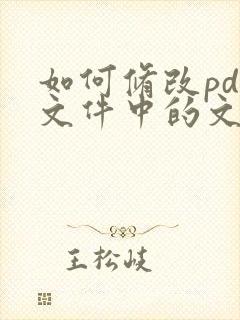 如何修改pd
文件中的文
王松岐